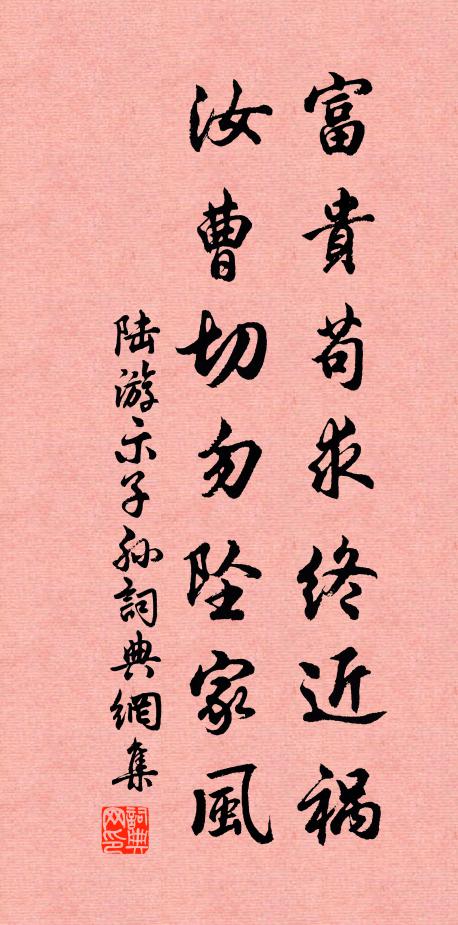 富貴苟求終近禍
汝曹切勿坠家風
陆游示子孙詞典網集
詞典网印